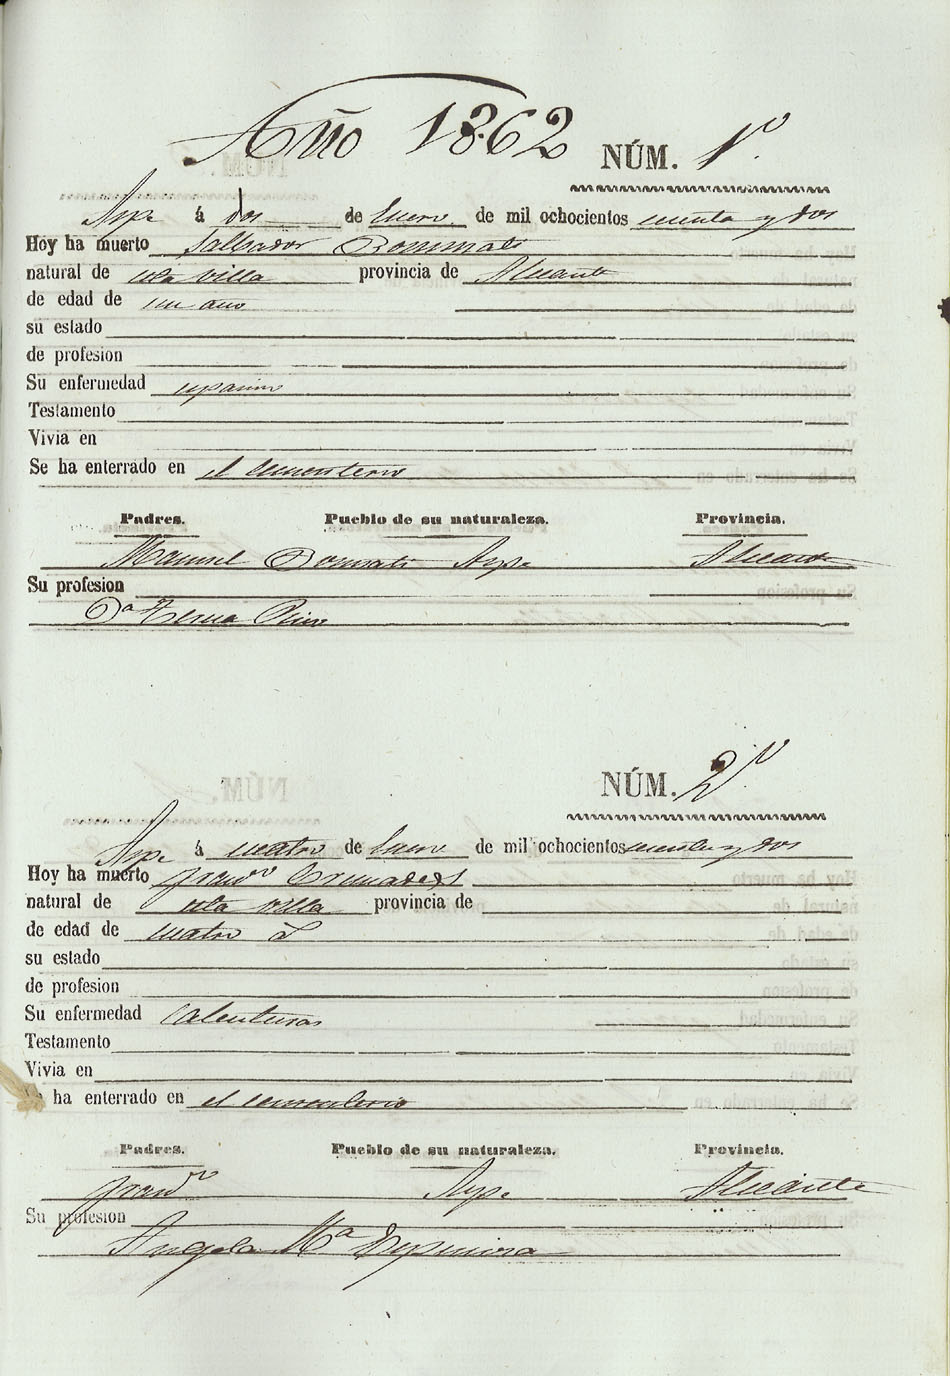 Año 1862 NÚM. 1º
Aspe á dos de Enero de mil ochocientos sesenta y dos
Hoy ha muerto Salbador Bonmati
natural de esta villa provincia de Alicante
de edad de un año
su estado
de profesion
Su enfermedad espasmo
Testamento
Vivia en
Se ha enterrado en el Cementerio
Padres. Pueblo de su naturaleza. Provincia.
Manuel Bonmati Aspe Alicante
Su profesion
Dª Teresa Rico
NÚM. 2º
Aspe á cuatro de Enero de mil ochocientos sesenta y dos
Hoy ha muerto Franº Cremades
natural de esta villa provincia de
de edad de cuatro
su estado
de profesion
Su enfermedad Calenturas
Testamento
Vivia en
ha enterrado en el cementerio
Padres. Pueblo de su naturaleza. Provincia.
Franº Aspe Alicante
Su profesion
Angela Mª